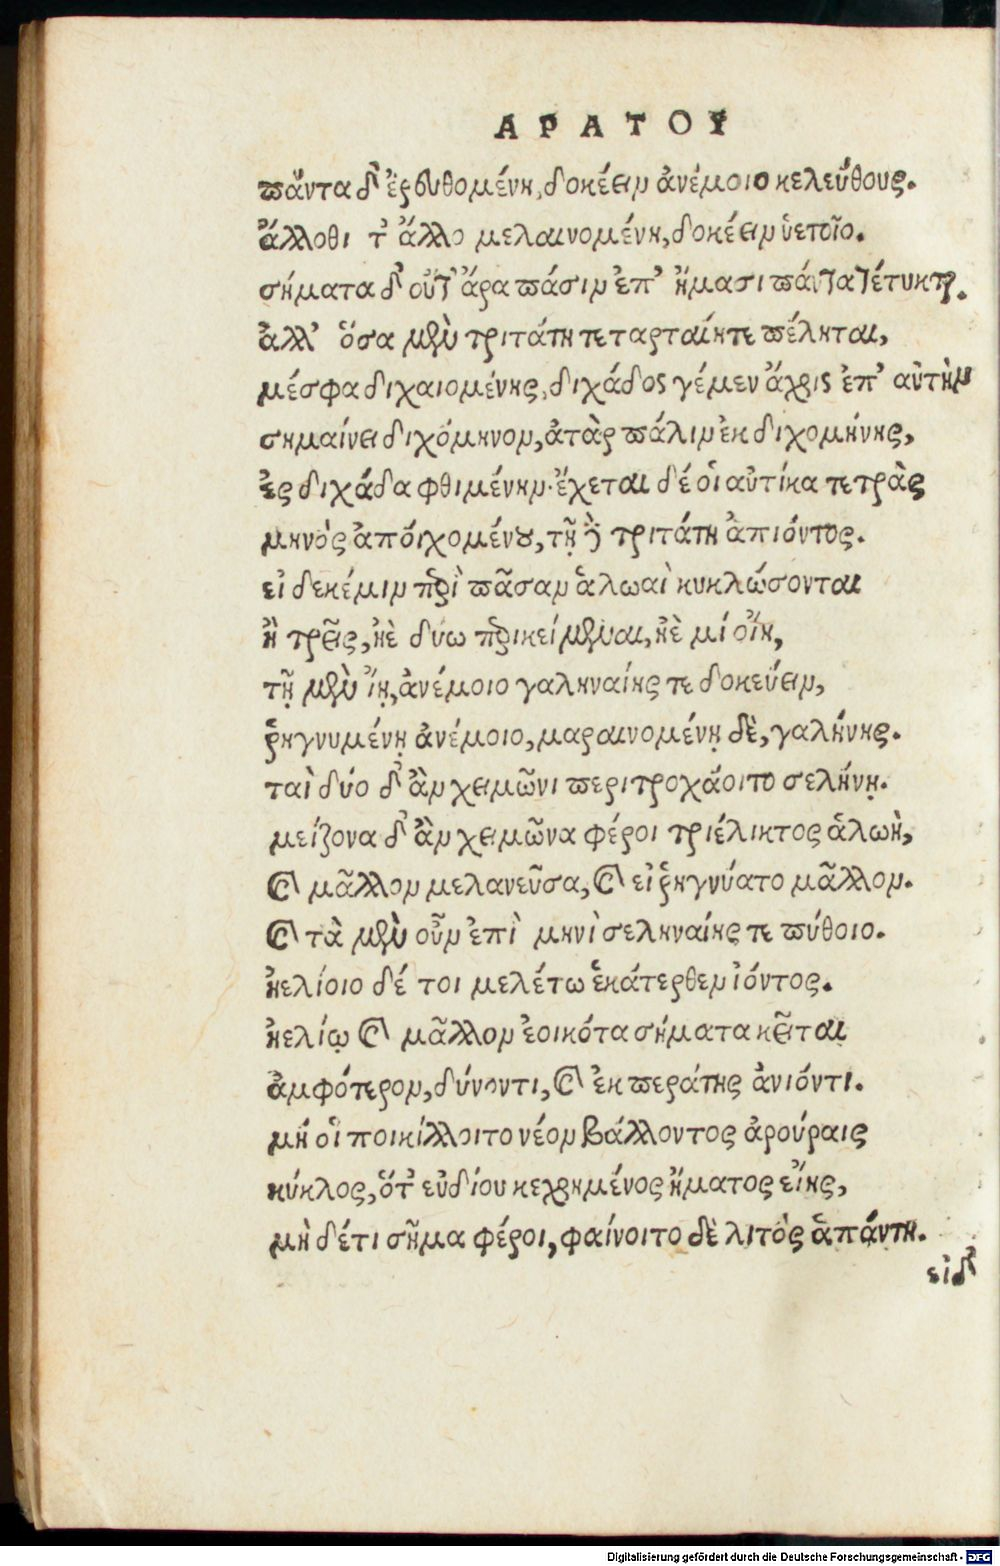 ΑΡΑΤΟΥ
πάντα δ' ἐρευθομένη, δοκέειν ἀνέμοιο κελεύθους.
ἄλλοθι τ' ἄλλο μελαινομένη, δοκέειν ὑετοῖο.
σήματα δ' οὔτ' ἄρα πάσιν ἐπ' ἤμασι πάντα τέτυκται.
ἀλλ' ὅσα μὲν τριτάτη τεταρταίη τε πέληται,
μέσφα διχαιομένης, διχάδος γέμεν ἄχρις ἐπ' αὐτὴν
σημαίνει διχόμηνον, ἀτὰρ πάλιν ἐκ διχομήνης,
ἐς διχάδα φθιμένην· ἔχεται δέ οἱ αὐτίκα τετρὰς
μηνὸς ἀποιχομένου, τῇ δὲ τριτάτη ἀπιόντος.
εἰ δε κέ μιν περὶ πᾶσαν ἁλωαὶ κυκλώσονται
ἢ τρεῖς, ἠὲ δύω περικείμεναι, ἠὲ μί' οἴη,
τῇ μὲν ἴῃ, ἀνέμοιο γαληναίης τε δοκεύειν,
ῥηγνυμένῃ ἀνέμοιο, μαραινομένῃ δὲ, γαλήνης.
ταὶ δύο δ' ἂν χειμῶνι περιτροχάοιτο σελήνῃ.
μείζονα δ' ἂν χειμῶνα φέροι τριέλικτος ἁλωὴ,
καὶ μᾶλλον μελανεῦσα, καὶ εἰ ῥηγνύατο μᾶλλον.
καὶ τὰ μὲν οὖν ἐπὶ μηνὶ σεληναίης τε πύθοιο.
ἠελίοιο δέ τοι μελέτω ἑκάτερθεν ἰόντος.
ἠελίῳ καὶ μᾶλλον ἐοικότα σήματα κεῖται
ἀμφότερον, δύνοντι, καὶ ἐκ περάτης ἀνιόντι.
μή οἱ ποικίλλοιτο νέον βάλλοντος ἀρούραις
κύκλος, ὅτ' εὐδίου κεχρημένος ἤματος εἴης,
μὴ δ' ἔτι σῆμα φέροι, φαίνοιτο δὲ λιτὸς ἁπάντη.
εἰ δ'
Digitalisierung gefördert durch die Deutsche Forschungsgemeinschaft - DFG